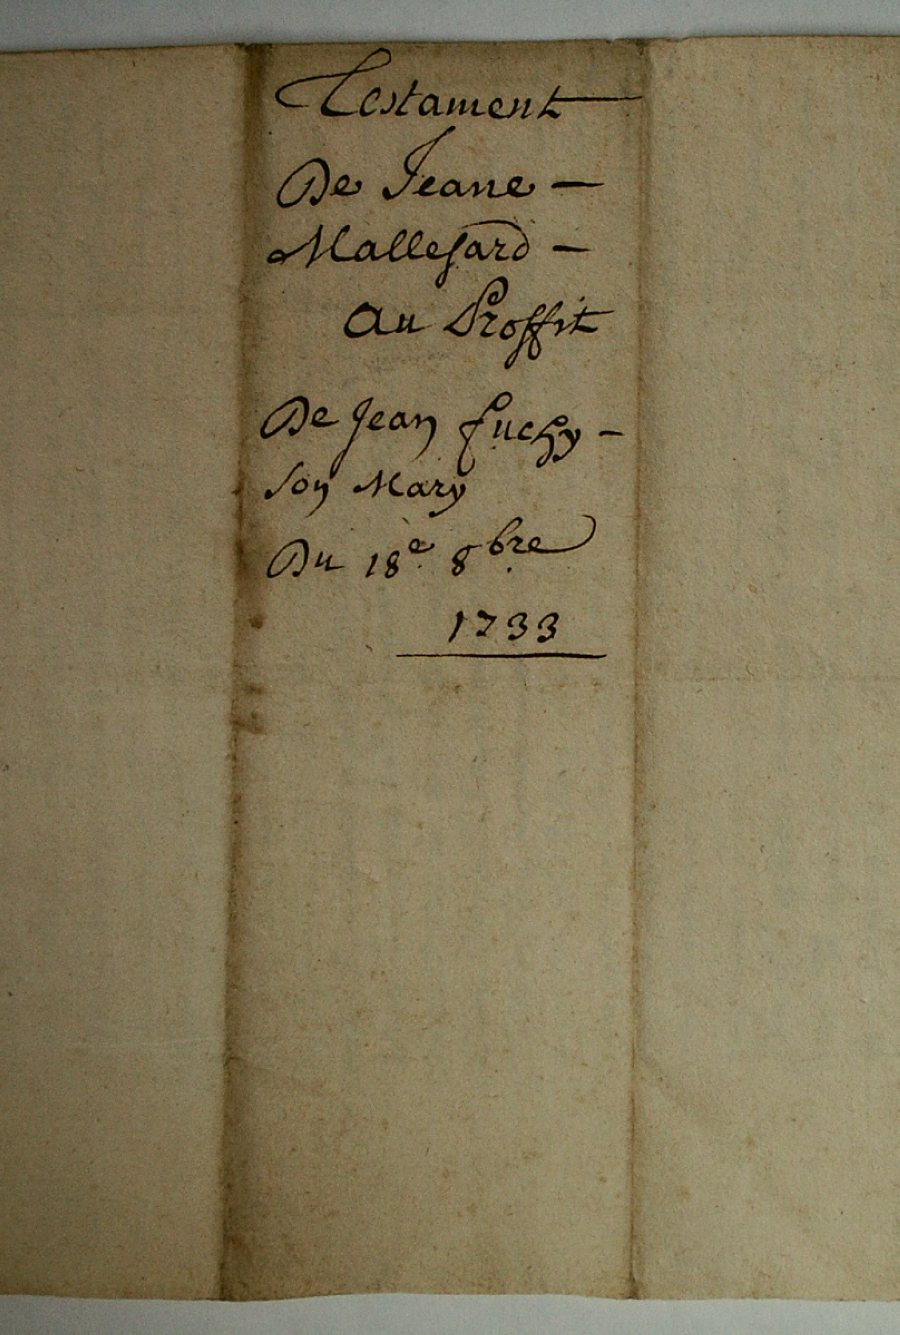 Testament
De Jeane -
Mallesard -
au Proffit
De Jean fuchy -
son Mary
Du 18e 8bre
1733